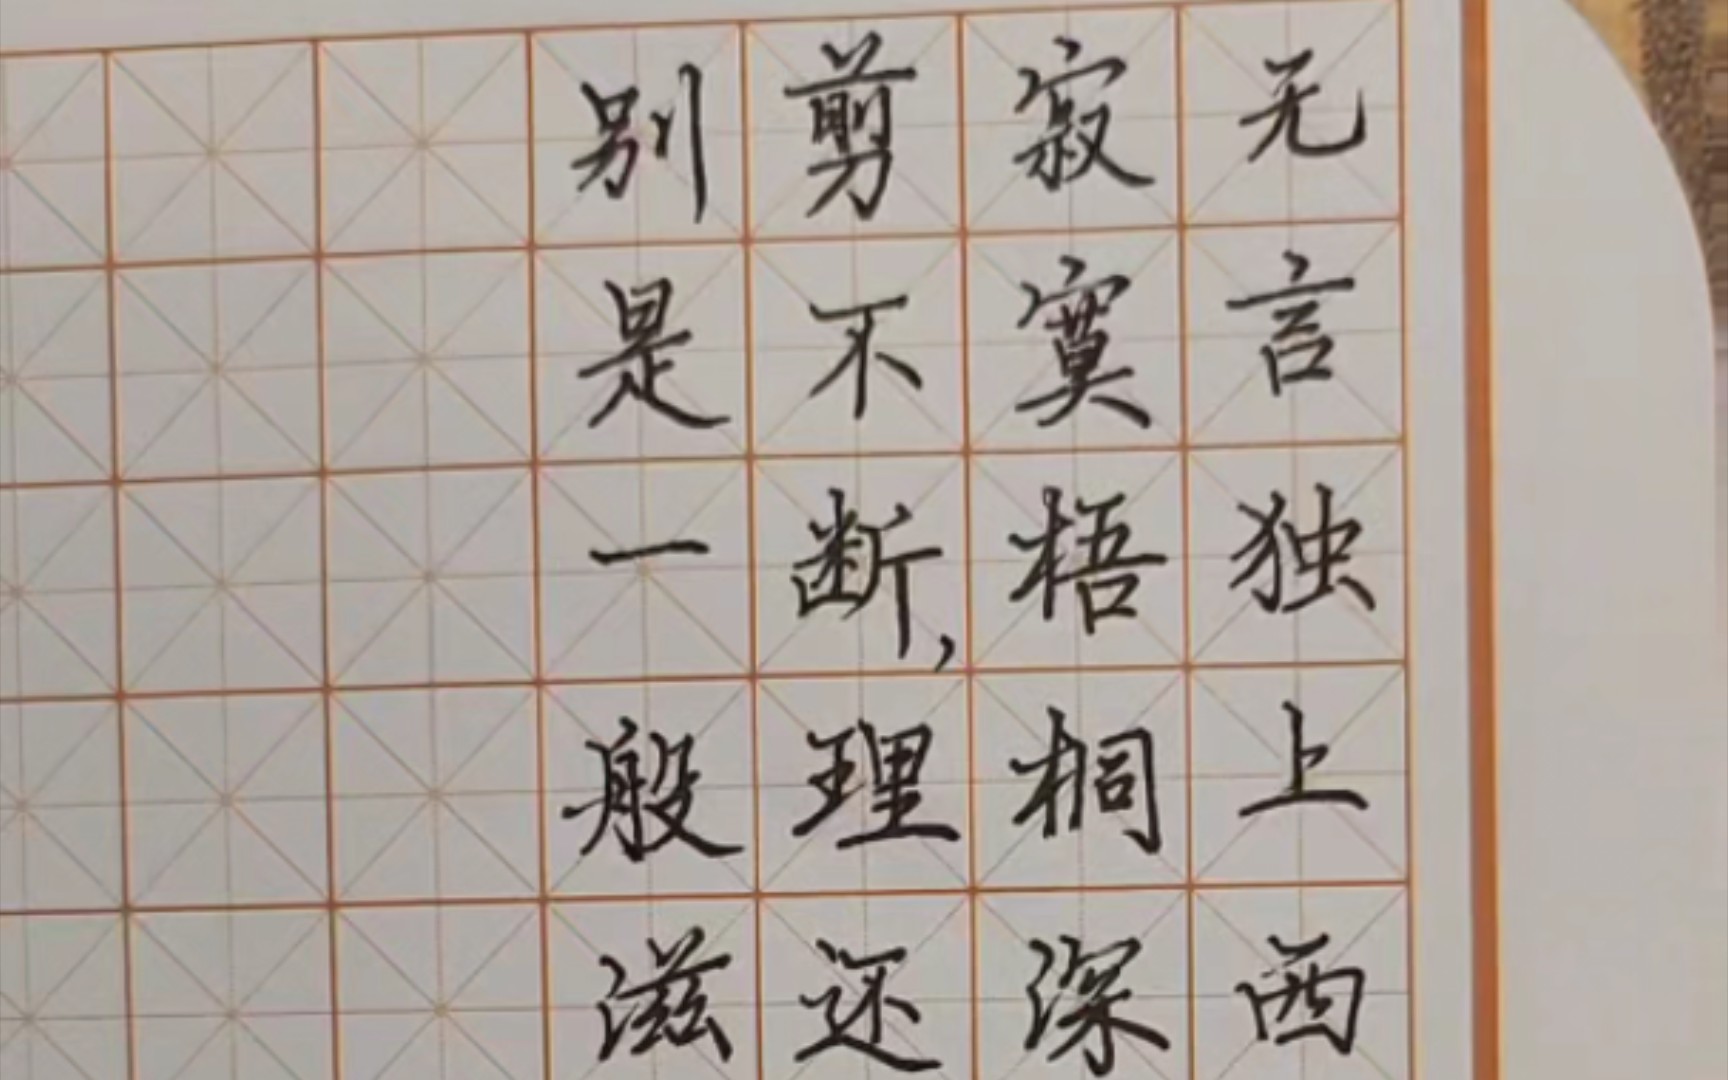 无言独上西
寂寞梧桐深
剪不断，理还
别是一般滋